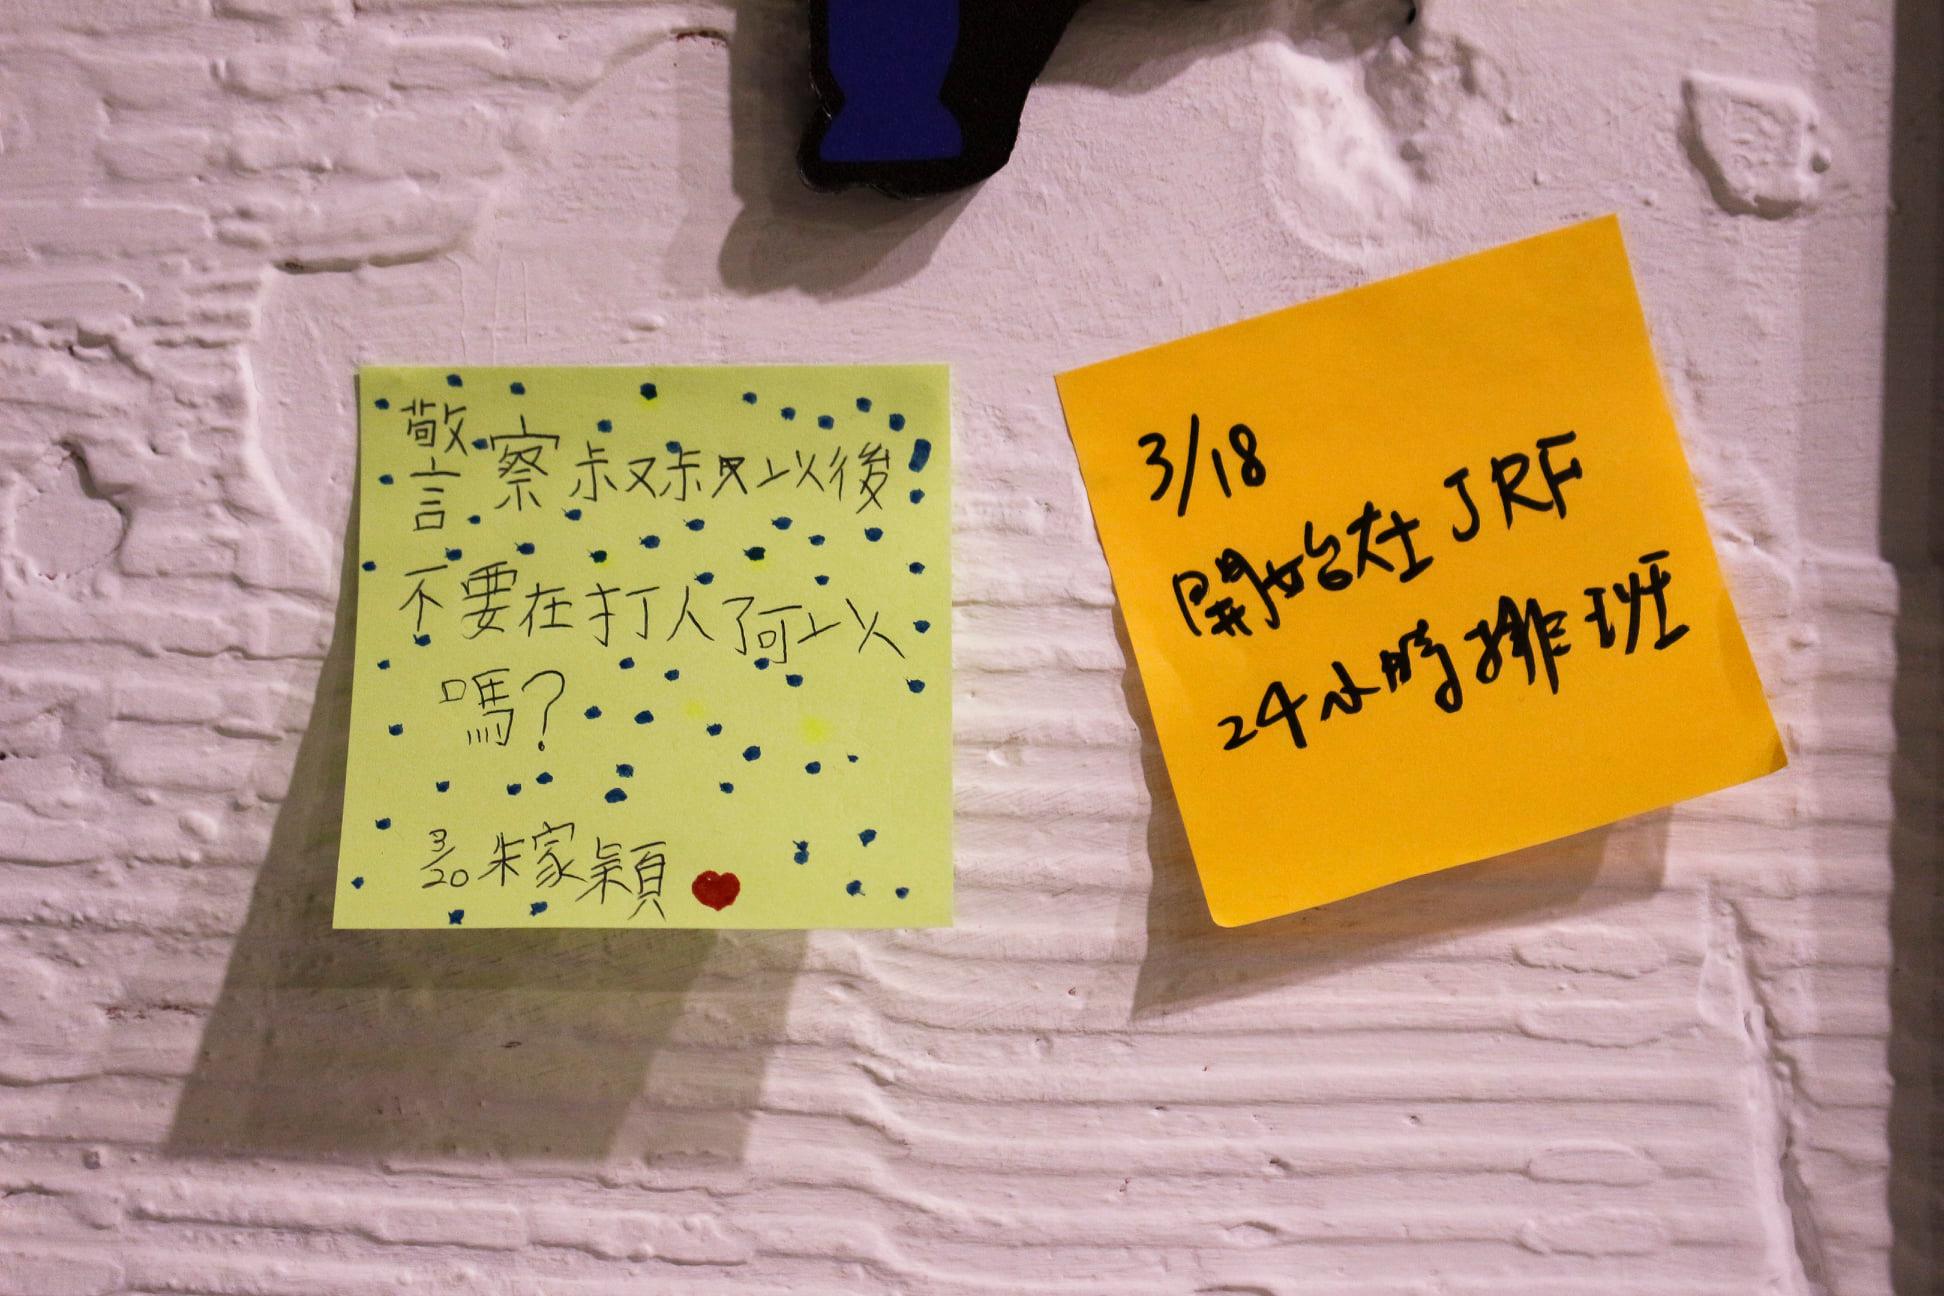 警察叔叔以後
不要在打人了可以
嗎?
3/20 朱家穎
3/18
開始在JRF
24小時排班